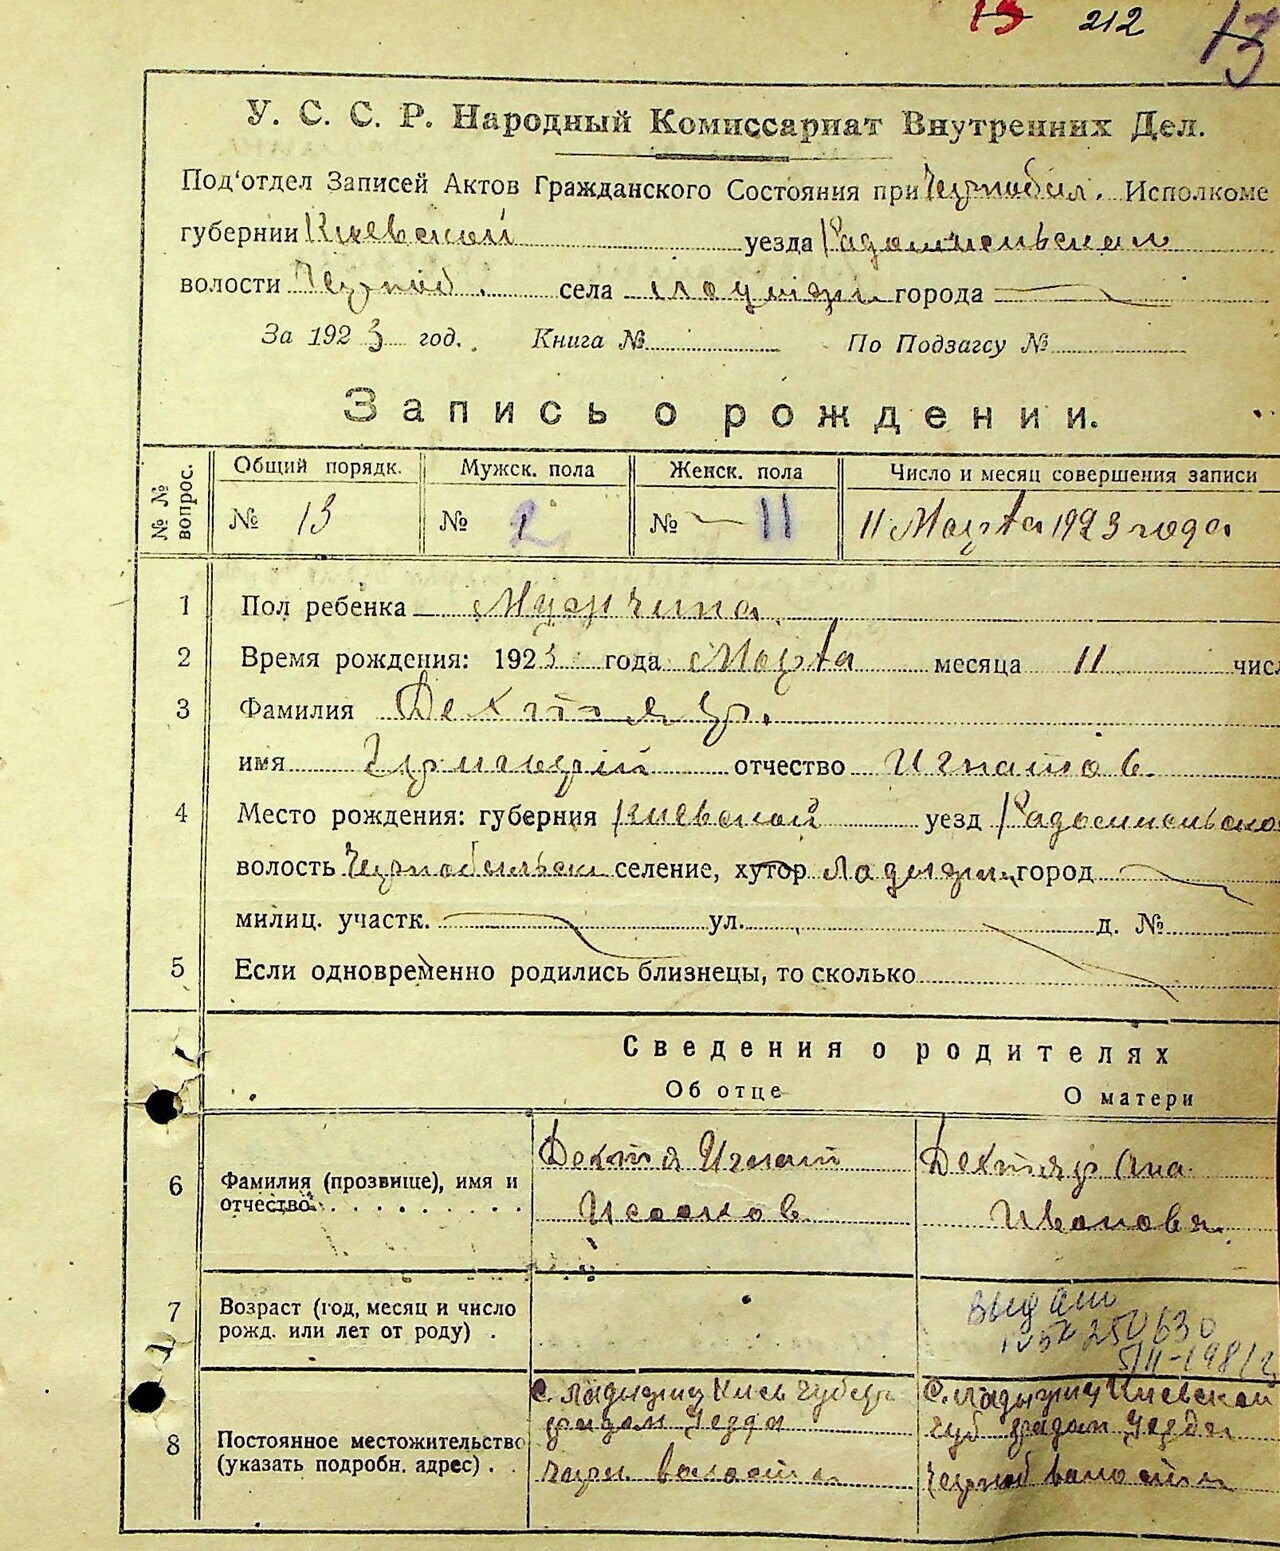 13 212 13
У. С. С. Р. Народный Комиссариат Внутренних Дел.
Под'отдел Записей Актов Гражданского Состояния при Чернобил. Исполкоме
губернии Киевской уезда Радомисльскаго
волости Черноб. села города
За 1923 год. Книга № По Подзагсу №
Запись о рождении.
№ № вопрос. Общий порядк. Мужск. пола Женск. пола Число и месяц совершения записи
№ 13 № 2 № 11 11 Марта 1923 года
1 Пол ребенка Мущчина
2 Время рождения: 1923 года Марта месяца 11 числ
3 Фамилия Дехтяр.
имя Григорий отчество Игнатов.
4 Место рождения: губерния Киевской уезд Радомисльско
волость Чернобильск селение, хутор Ладыжич город
милиц. участк. ул. д. №
5 Если одновременно родились близнецы, то сколько
Сведения о родителях
Об отце О матери
6 Фамилия (прозвище), имя и отчество. Дехтя Игнат Исаков Дехтяр Ана Иванова
7 Возраст (год, месяц и число рожд. или лет от роду) .
Выдан
250630
8 Постоянное местожительство (указать подробн. адрес) .
С. Ладыжич Киев Губер С. Ладыжич Киевской
радом Уезда Губ радом Уезда
черн. Волости Черноб волости